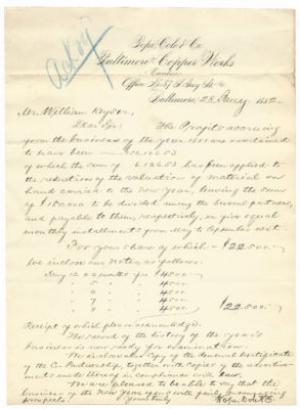 Pope, Cole & Co.
Baltimore Copper Works
Office No 57 S. Gay St.
Baltimore, 28 1882
Mr. William Keyser
Dear Sir: The Profits accruing
from the business of the year 1881 are ascertained
to have been
of which the sum of has been applied to
the reduction of the valuation of material on
hand carried to the New Year, leaving the sum
of $150000 to be divided among the several partners,
and payable to them, respectively, in five equal
monthly installments from May to September next.
For your share of which - $22.500.-
we inclose our Notes, as follows:
4500
" 5 " " 4500
" 6 " " 4500
" 7 " " 4500
" 8 " " 4500 $22.500.-
Receipt of which please acknowledge.
The record of the history of the year's
business is now ready for examination.
We inclose also Copy of the General Certificate
of the Co-Partnership, together with Copies of the
made thereof in compliance with law.
We are pleased to be able to say that the
business of the New Year opens with
prospects. Yours truly